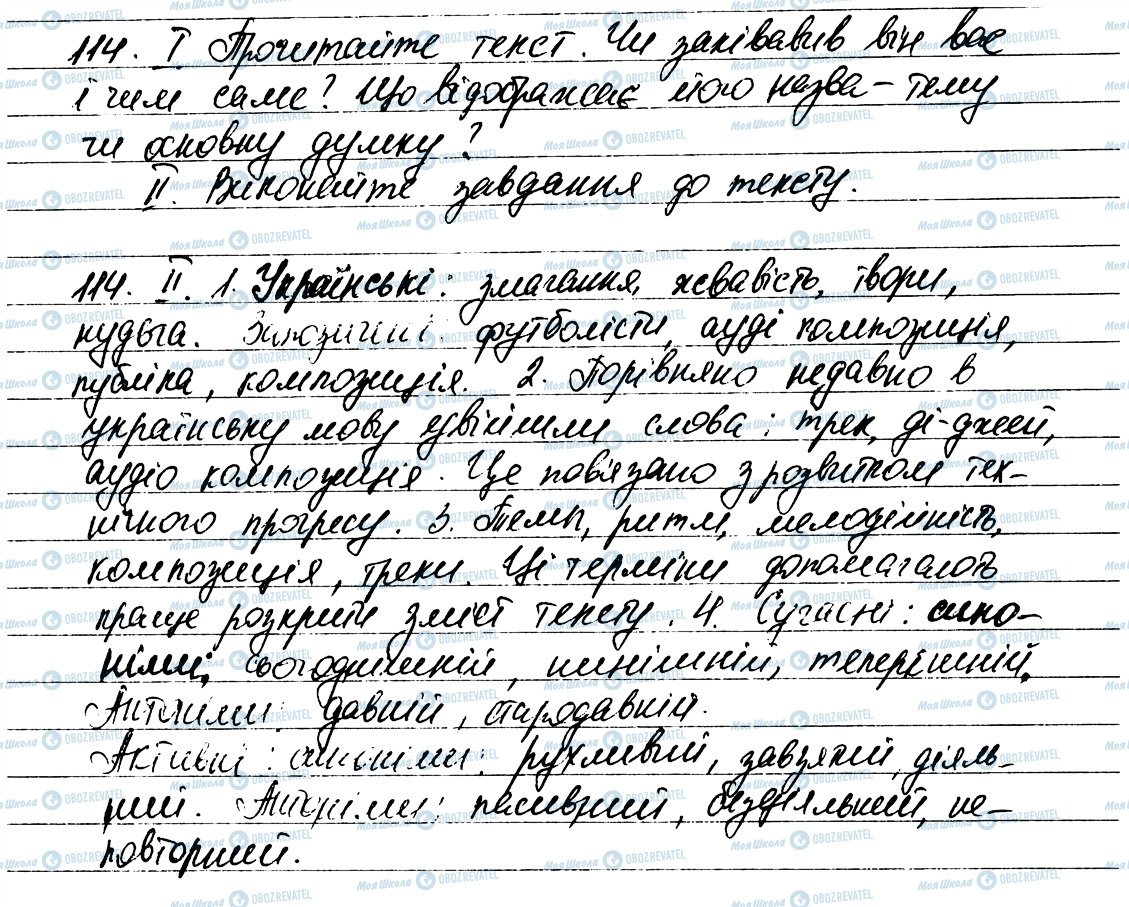 114. I Прочитайте текст. Чи зацікавив він вас
і чим саме? Що відображає його назва – тему
чи основну думку?
II. Виконайте завдання до тексту.
114. II. 1. Українські: змагання, жвавість, твори,
нудьга. Запозичені: футболісти, аудіокомпозиція,
публіка, композиція. 2. Порівняно недавно в
українську мову увійшли слова: трек, ді-джей,
аудіо композиція. Це пов'язано з розвитком тех-
нічного прогресу. 3. Темп, ритм, мелодійність,
композиція, треки. Ці терміни допомагають
краще розкрити зміст тексту. 4. Сучасні: сино-
німи: сьогоднішній, нинішній, теперішній.
Антоніми: давній, стародавній.
Активні: синоніми: рухливий, завзятий, діяль-
ний. Антоніми: пасивний, бездіяльний, не-
повторний.